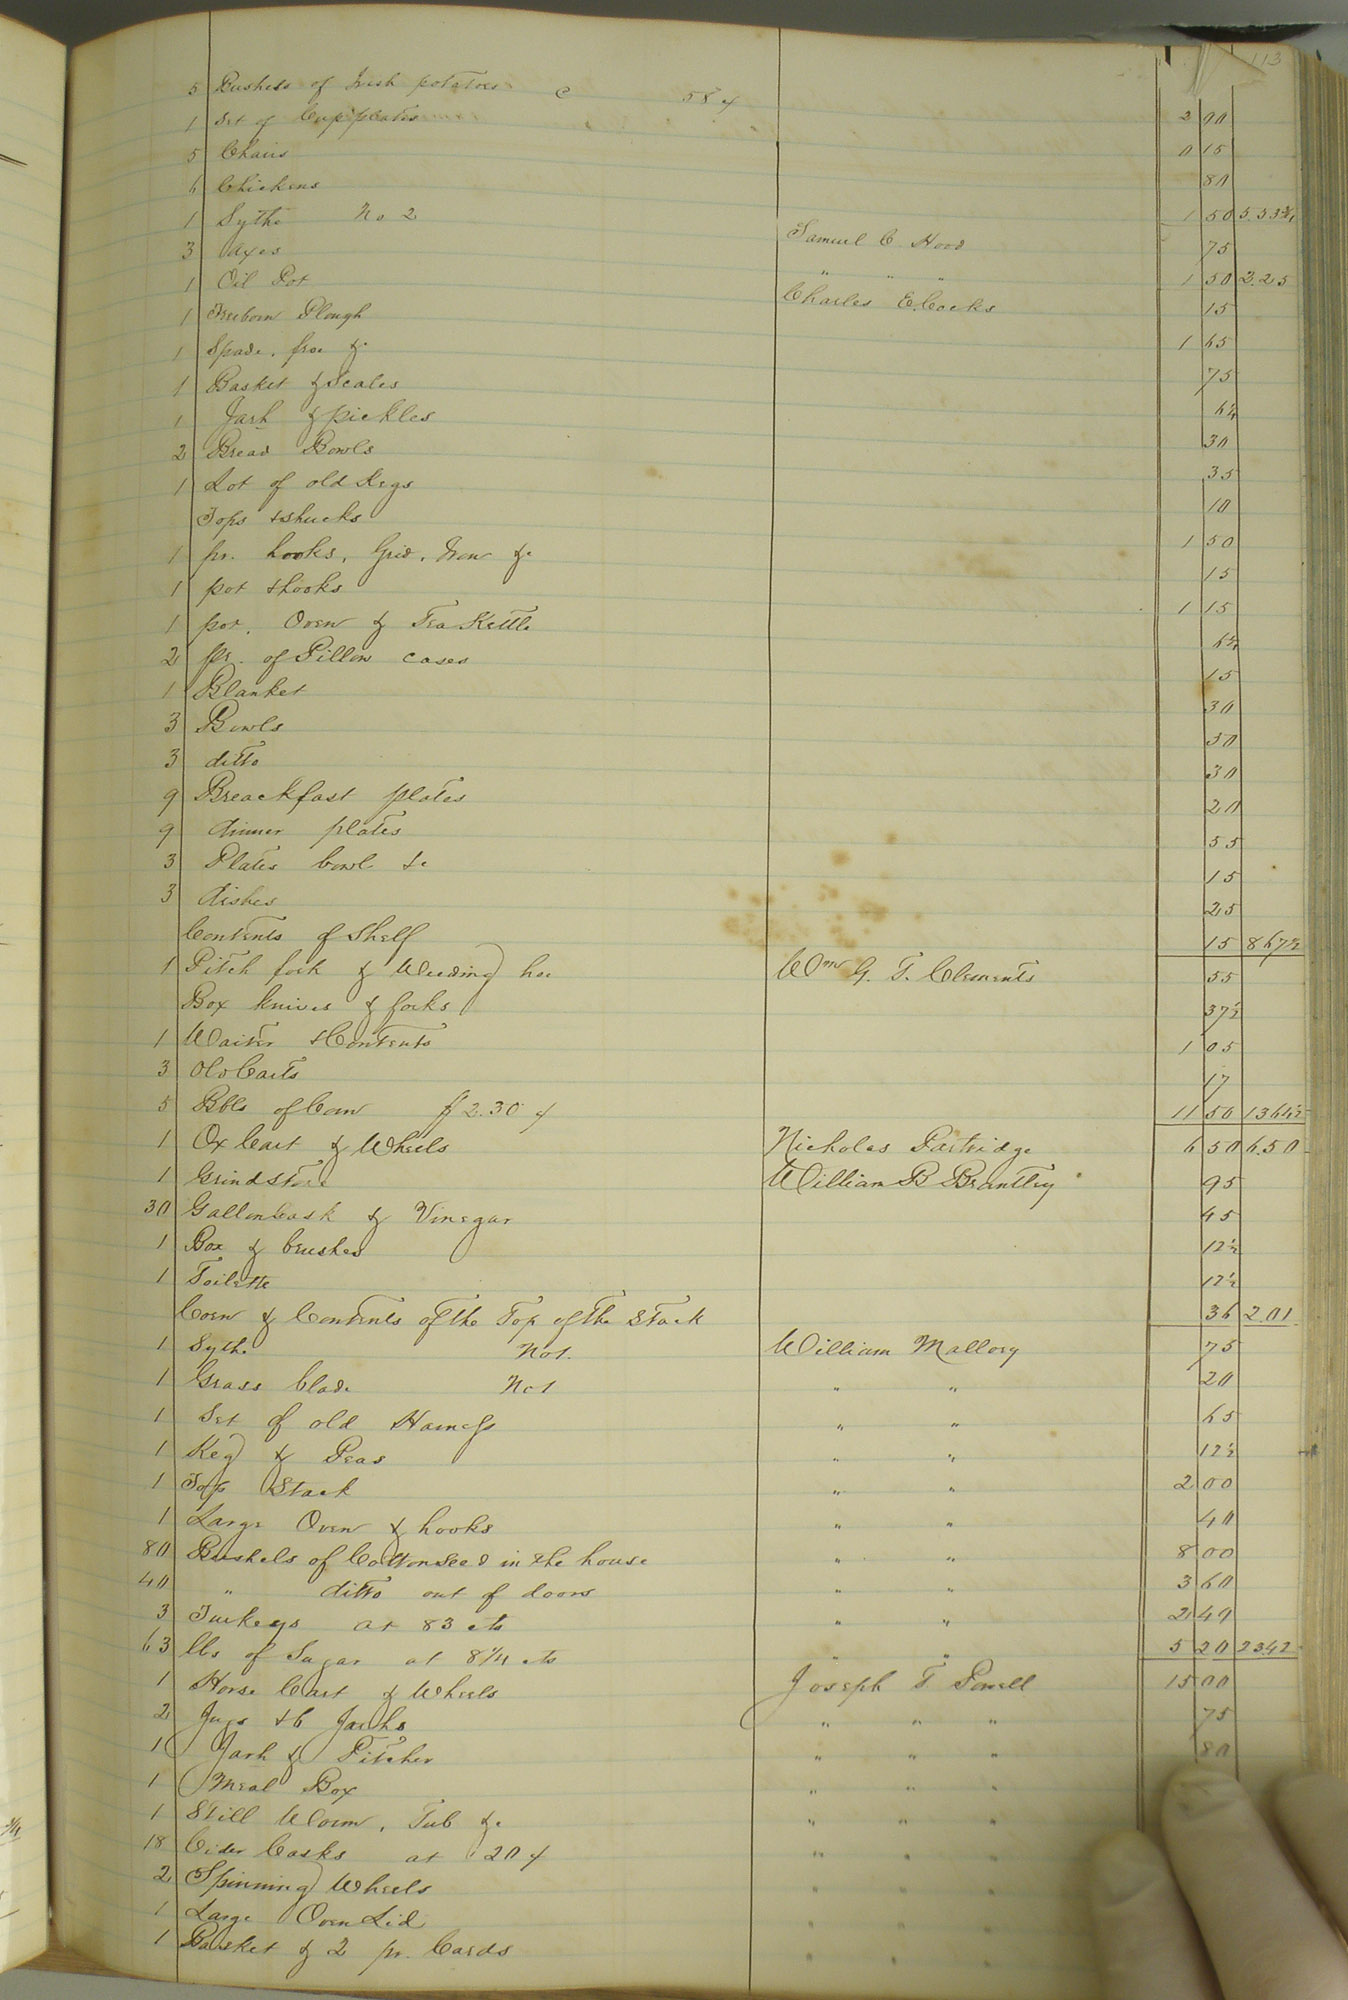 113
5 Bushels of Irish potatoes @ 58 ¢ 2 90
1 Set of Cup plates 0 15
5 Chairs 80
6 Chickens 1 50 5.53 3/4
1 Sythe No 2 Samuel C. Hood 75
3 Axes " " " 1 50 2.25
1 Oil Pot Charles E. Cocks 15
1 Freeborn Plough 1 65
1 Spade, froe &c 75
1 Basket & Scales 6 1/4
1 Jarh & pickles 30
2 Bread Bowls 35
1 Lot of old Kegs 10
Tops & shucks 1 50
1 pr. hooks, Grid, Iron &c 15
1 pot & hooks 1 15
1 pot, Oven & Tea Kettle 6 1/4
2 pr. of Pillow cases 15
1 Blanket 30
3 Bowls 30
3 ditto 30
9 Breackfast plates 20
9 dinner plates 55
3 Plates bowl &c 15
3 dishes 25
Contents of Shelf 15 8 67 1/2
1 Pitch fork & Weeding hoe Wm G. T. Clements 55
Box knives & forks 37 1/2
1 Waiter & Contents 1 05
3 Old Carts 17
5 Bbls of Corn $ 2.30 ¢ 11 50 13 64 1/2
1 Ox Cart & Wheels Nicholas Partridge 6 50 6.50
1 Grindstone William B Brantley 95
30 Gallon Cask & Vinegar 45
1 Box & brushes 12 1/2
1 Toilette 12 1/2
Corn & Contents of the Top of the Stack 36 2.01
1 Sythe No 1. William Mallory 75
1 Grass blade No 1 " " 20
1 Set of old Harness " " 65
1 Keg & Peas " " 12 1/2
1 Top Stack " " 2 00
1 Large Oven & hooks " " 40
80 Bushels of Cotton Seed in the house " " 8 00
40 " ditto out of doors " " 3 60
3 Turkeys at 83 cts " " 2 49
63 lbs of Sugar at 8 1/4 cts " " 5 20 23.42
1 Horse Cart & Wheels Joseph T Powell 15 00
2 Jugs & 6 Jarhs " " " 75
1 Jarh & Pitcher " " " 80
1 Meal Box " " "
1 Still Worm, Tub &c " " "
18 Cider Casks at 20 ¢ " " "
2 Spinning Wheels " " "
1 Large Oven Lid " " "
1 Basket & 2 pr. Cards " " "